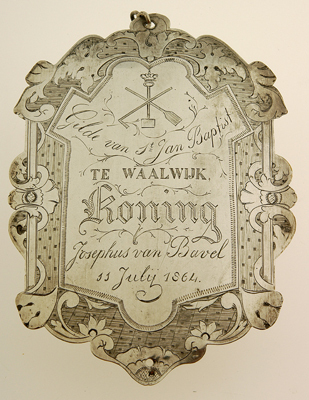 Gilde van St Jan Baptist
TE WAALWIJK.
Koning
Josephus van Bavel
11 July 1864.